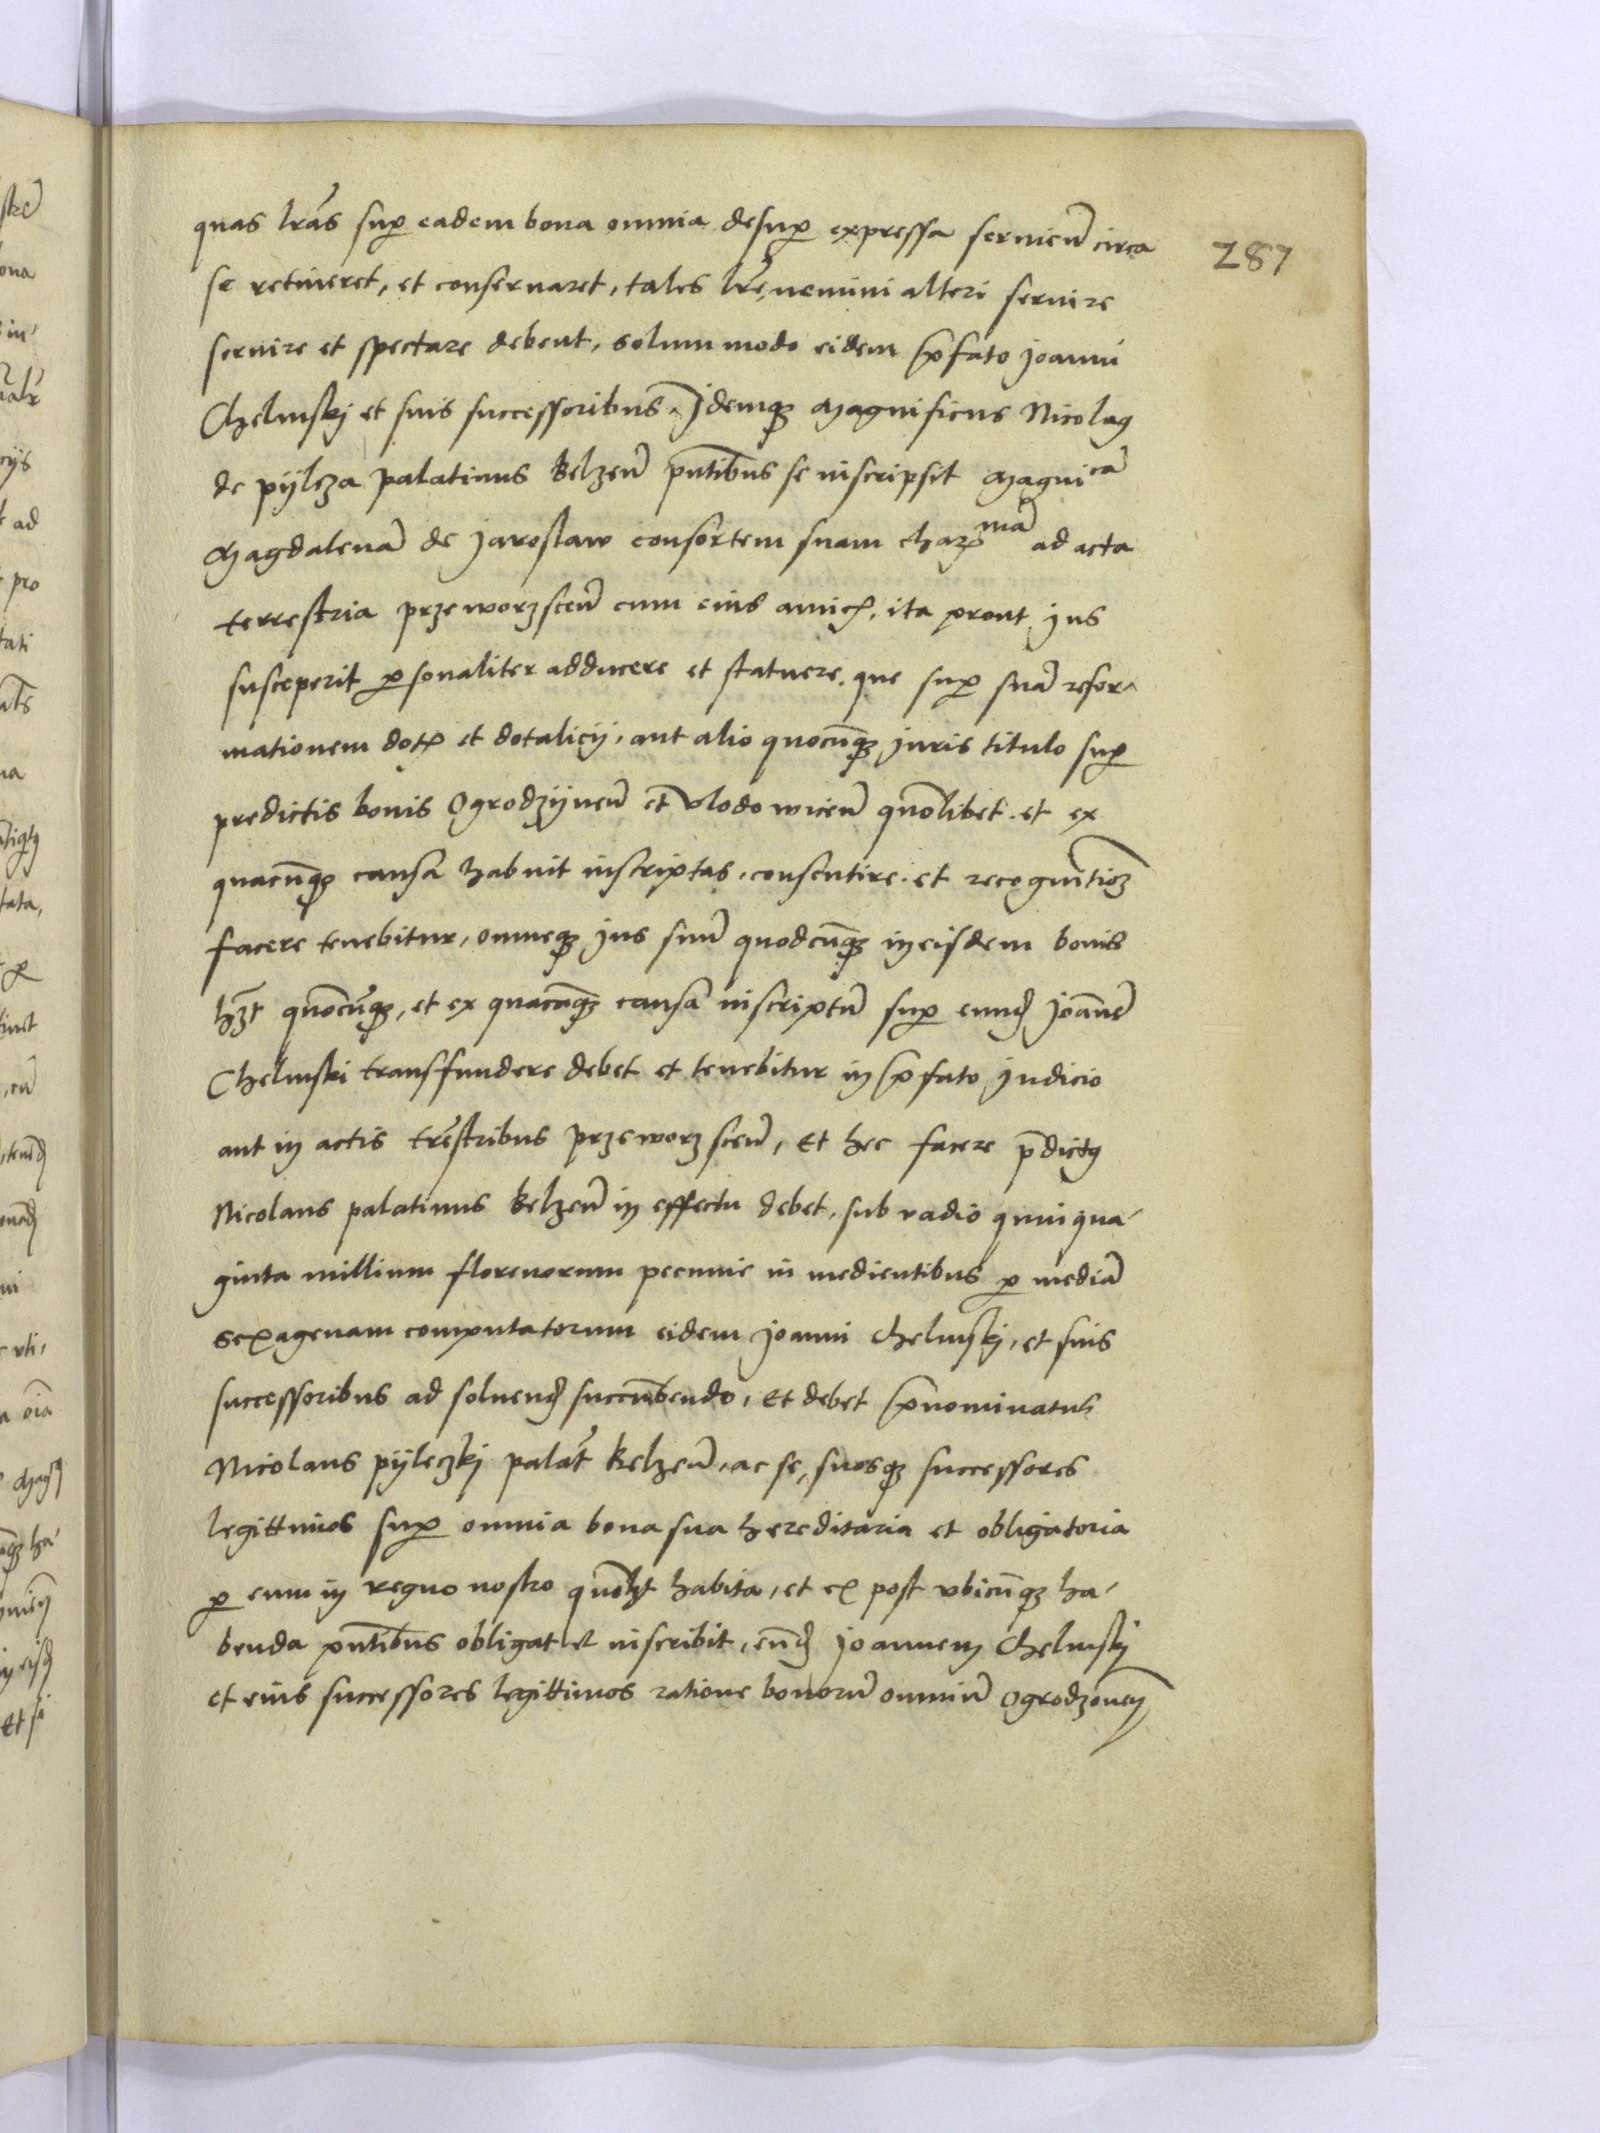 287
quas lr̃as sup eadem bona omnia desup expressa servieñ circa
se retineret, et conservaret, tales lr̃e, nemini alteri servire
servire et spectare debent, solummodo eidem p̱fato Joanni
Chelmskj et suis successoribus. Jdemq₃ Magnificus Nicolaꝰ
de pÿlcza palatinus belzeñ pñtibus se inscripsit Magnicã
Magdalenã de Jaroslaw consortem suam charmã ad acta
terrestria przeworzsceñ cum eius amicꝭ. ita prout Jus
susceperit ꝑsonaliter adducere et statuere. que sup suã refor-
mationem dotꝭ et dotalicij, aut alio quocũq₃ juris titulo sup
predictis bonis Ogrodzÿneñ et̃ vlodowiceñ quõlibet. et ex
quacũq₃ causa habuit inscriptas, consentire. et recognitioẽ
facere tenebitur, omneq₃ jus suũ quodcũq₃ in eisdem bonis
hz̃t quocũq₃, et ex quacũq₃ causa inscriptũ sup eund̃ Joãnẽ
Chelmski transfundere debet et tenebitur in p̱fato judicio
aut in actis tr̃estribus przeworzsceñ, Et hec facere p̃dictꝰ
Nicolaus palatinus belzeñ in effectu debet, sub vadio quinqua-
ginta millium florenorum pecunie in medientibus ꝑ mediã
sexagenam computatorum eidem Joanni Chelmskj, et suis
successoribus ad solvend̃ succũbendo, Et debet p̱nominatus
Nicolaus pÿleczkj palat̃ belzeñ, ac se, suosq₃ successores
legittimos sup omnia bona sua hereditaria et obligatoria
ꝑ eum in regno nostro quõlzt habita, et ex post vbicũq₃ ha-
benda pñtibus obligat et inscribit, eũd̃ Joannem Chelmskj
et eius successores legittimos ratione bonorũ omniũ Ogrodzoneñ